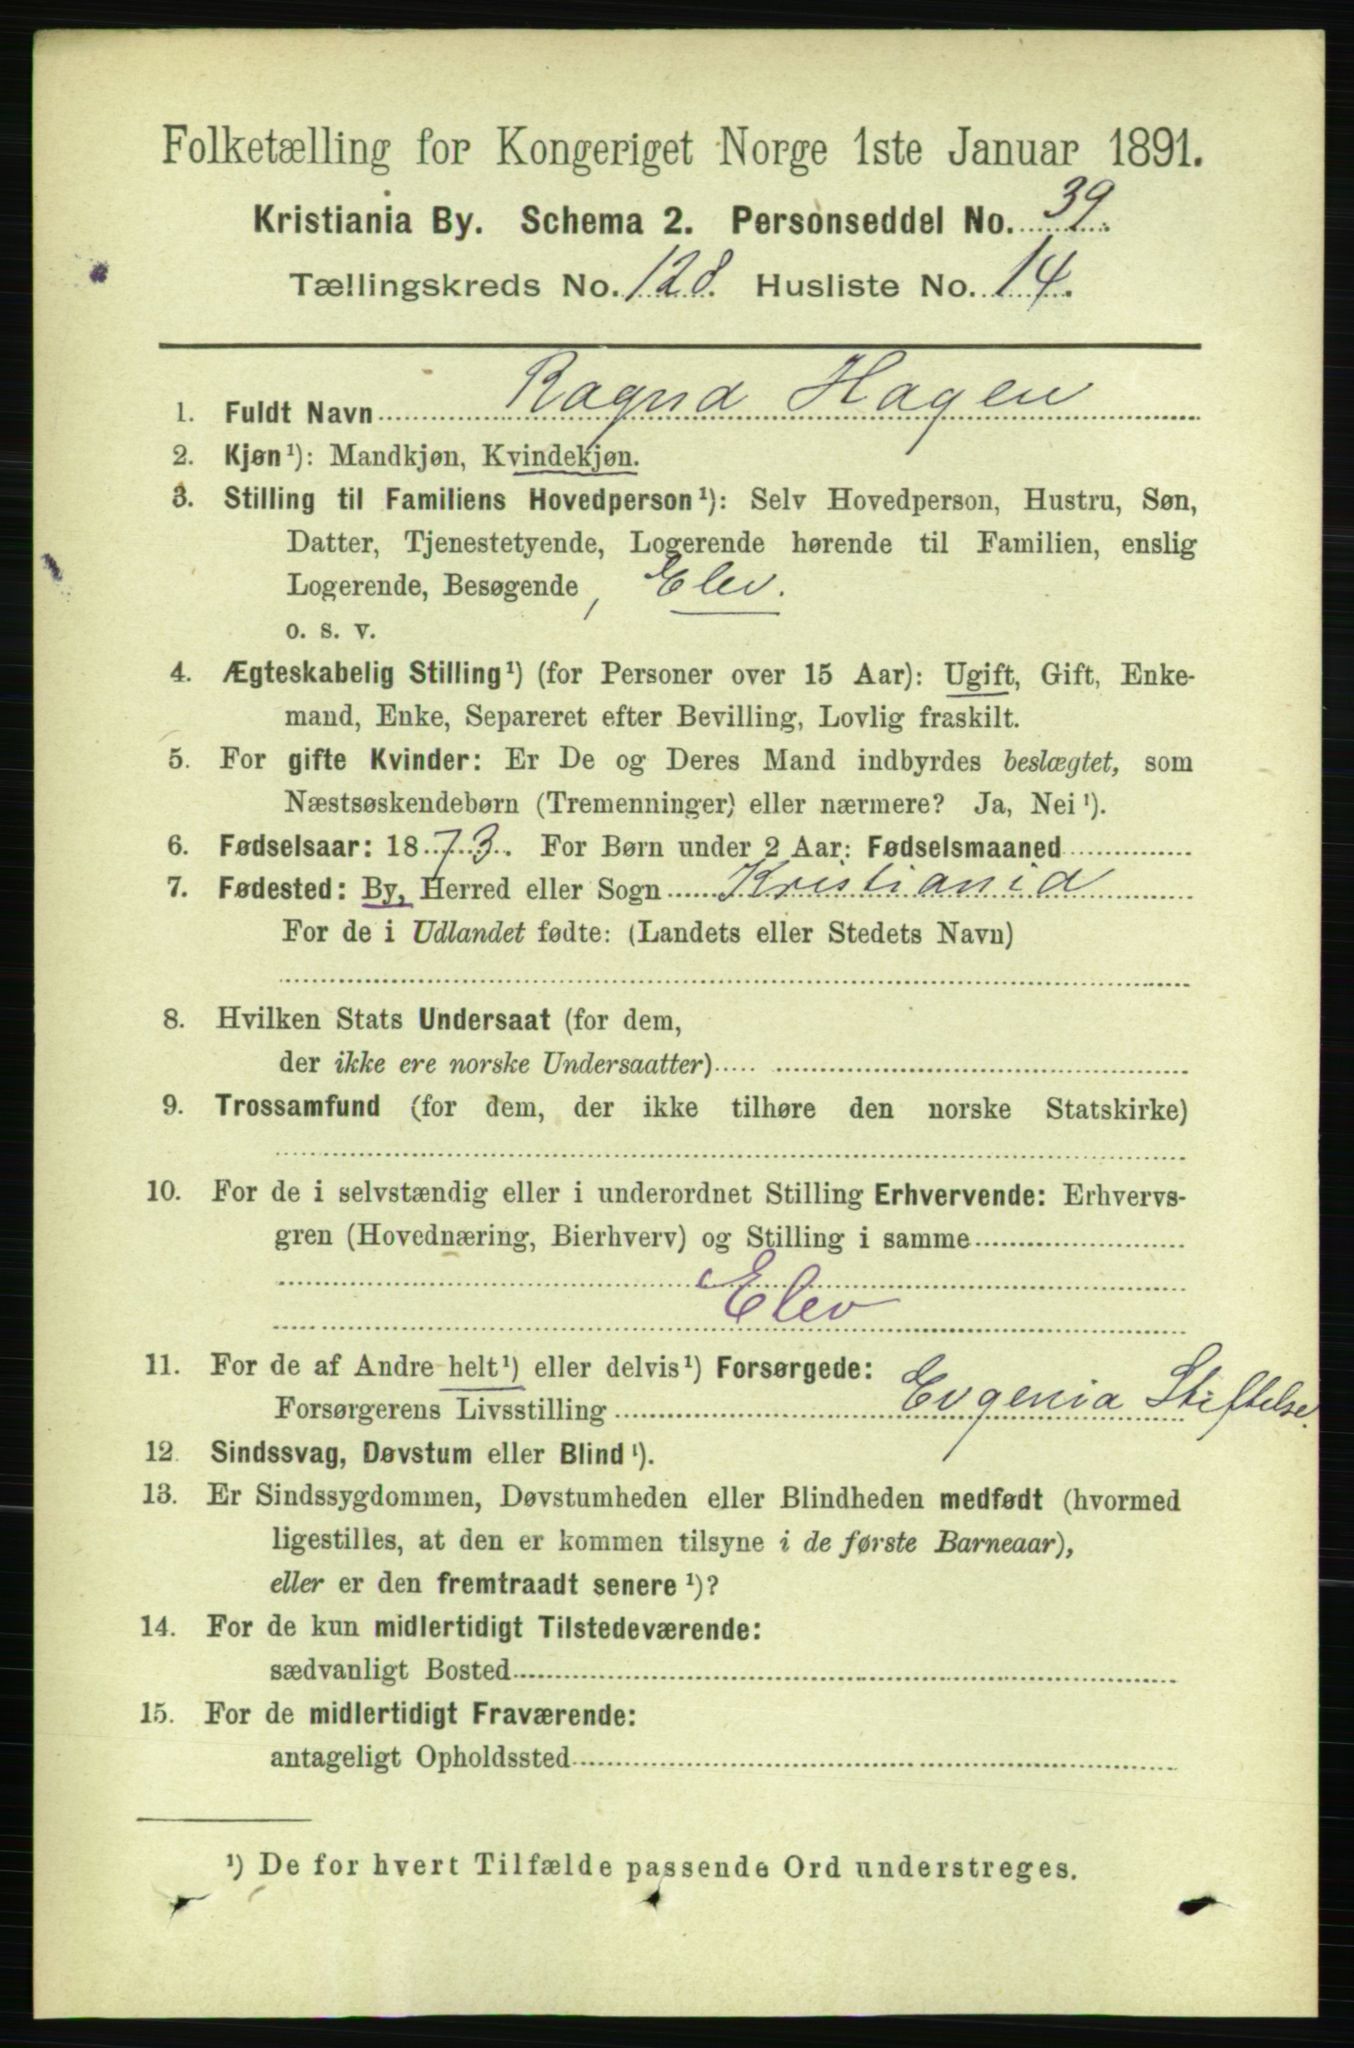 Folketælling for Kongeriget Norge 1ste Januar 1891.
Kristiania By. Schema 2. Personseddel No. 39.
Tællingskreds No. 128. Husliste No. 14.
1. Fuldt Navn Ragna Hagen
2. Kjøn¹): Mandkjøn, Kvindekjøn.
3. Stilling til Familiens Hovedperson¹): Selv Hovedperson, Hustru, Søn,
Datter, Tjenestetyende, Logerende hørende til Familien, enslig
Logerende, Besøgende, Elev.
o. s. v.
4. Ægteskabelig Stilling¹) (for Personer over 15 Aar): Ugift, Gift, Enke-
mand, Enke, Separeret efter Bevilling, Lovlig fraskilt.
5. For gifte Kvinder: Er De og Deres Mand indbyrdes beslægtet, som
Næstsøskendebørn (Tremenninger) eller nærmere? Ja, Nei¹).
6. Fødselsaar: 1873. For Børn under 2 Aar: Fødselsmaaned
7. Fødested: By, Herred eller Sogn Kristiania
For de i Udlandet fødte: (Landets eller Stedets Navn)
8. Hvilken Stats Undersaat (for dem,
der ikke ere norske Undersaatter)
9. Trossamfund (for dem, der ikke tilhøre den norske Statskirke)
10. For de i selvstændig eller i underordnet Stilling Erhvervende: Erhvervs-
gren (Hovednæring, Bierhverv) og Stilling i samme
Elev
11. For de af Andre helt¹) eller delvis¹) Forsørgede:
Forsørgerens Livsstilling Evgenia Stiftelse.
12. Sindssvag, Døvstum eller Blind¹).
13. Er Sindssygdommen, Døvstumheden eller Blindheden medfødt (hvormed
ligestilles, at den er kommen tilsyne i de første Barneaar),
eller er den fremtraadt senere¹)?
14. For de kun midlertidigt Tilstedeværende:
sædvanligt Bosted
15. For de midlertidigt Fraværende:
antageligt Opholdssted
¹) De for hvert Tilfælde passende Ord understreges.